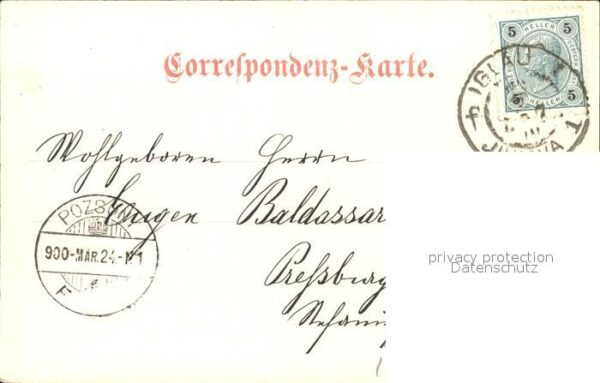 Correspondenz-Karte.
5 HELLER 5
5 5
IGLAU
JIHLAVA 1
Wohlgeboren Herrn
Eugen Baldassar
Pressburg
Stefani
POZSONY
900-MAR.24-N1
privacy protection
Datenschutz